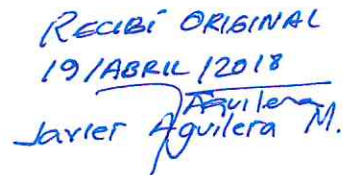 RECIBÍ ORIGINAL
19/ABRIL/2018
Aguilera
Javier Aguilera M.